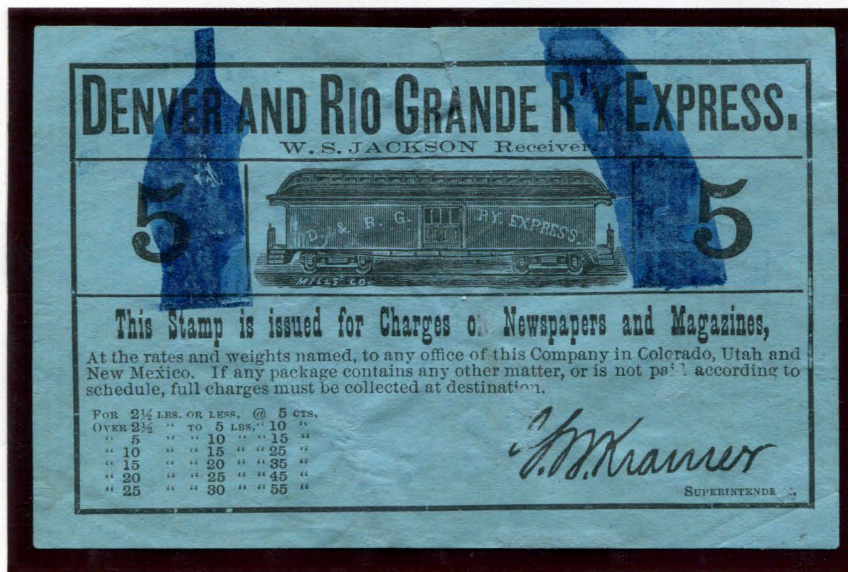 DENVER AND RIO GRANDE R'Y EXPRESS.
W. S. JACKSON Receiver.
5 5
D. & R. G. RY. EXPRESS.
MILLS CO.
This Stamp is issued for Charges on Newspapers and Magazines,
At the rates and weights named, to any office of this Company in Colorado, Utah and
New Mexico. If any package contains any other matter, or is not pai according to
schedule, full charges must be collected at destination.
FOR 2½ LBS. OR LESS, @ 5 CTS.
OVER 2½ " TO 5 LBS, " 10 "
" 5 " " 10 " " 15 "
" 10 " " 15 " " 25 "
" 15 " " 20 " " 35 "
" 20 " " 25 " " 45 "
" 25 " " 30 " " 55 "
Kramer
SUPERINTENDE